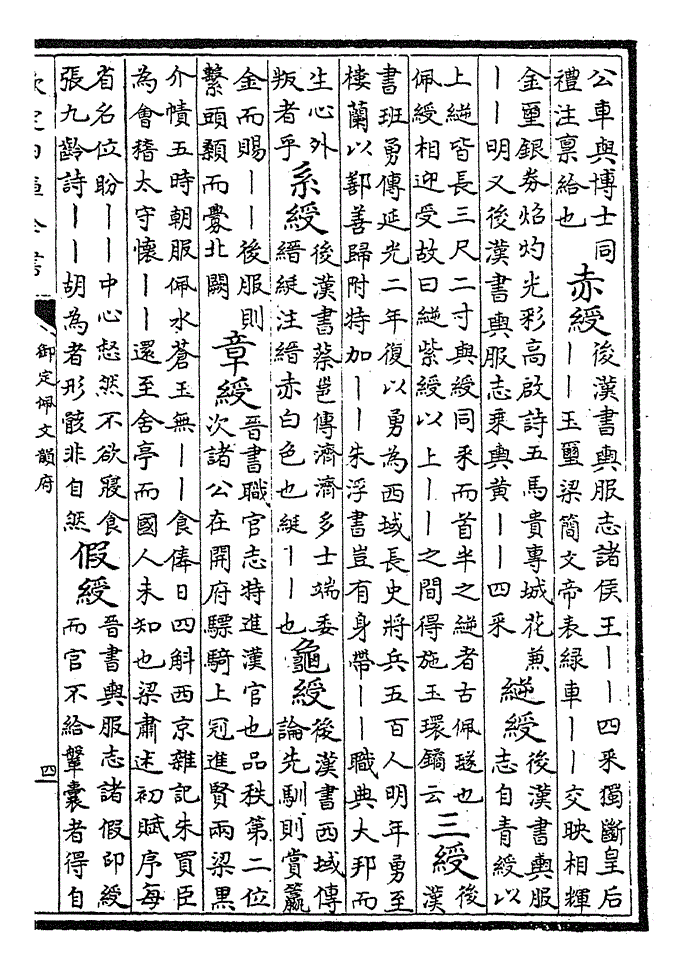 公車與博士同
禮注稟給也
赤綬
後漢書輿服志諸侯王——四采獨斷皇后
——玉璽梁簡文帝表綠車——交映相輝
金璽銀券焰灼光彩高啟詩五馬貴專城花兼
——明又後漢書輿服志乘輿黃——四采
縌綬
後漢書輿服
志自青綬以
上縌皆長三尺二寸與綬同采而首半之縌者古佩璲也
佩綬相迎受故曰縌紫綬以上——之間得施玉環鐍云
三綬
後
漢
書班勇傳延光二年復以勇為西域長史將兵五百人明年勇至
樓蘭以鄯善歸附特加——朱浮書豈有身帶——職典大邦而
生心外
叛者乎
系綬
後漢書蔡邕傳濟濟多士端委
縉綎注縉赤白色也綎——也
龜綬
後漢書西域傳
論先馴則賞籯
金而賜——後服則
繫頭顙而釁北闕
章綬
晉書職官志特進漢官也品秩第二位
次諸公在開府驃騎上冠進賢兩梁黑
介幘五時朝服佩水蒼玉無——食俸日四斛西京雜記朱買臣
為會稽太守懷——還至舍亭而國人未知也梁肅述初賦序每
省名位盼——中心惄然不欲寢食
張九齡詩——胡為者形骸非自然
假綬
晉書輿服志諸假印綬
而官不給鞶囊者得自
欽定四庫全書
御定佩文韻府
四